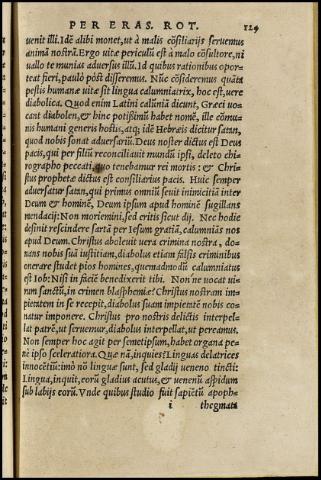 PER ERAS. ROT. 129
uenit illi. Idē alibi monet, ut à malis cōsiliarijs seruemus
animā nostrā. Ergo uitæ periculū est à malo cōsultore, ni
uallo te munias aduersus illū. Id quibus rationibus opor-
teat fieri, paulò pòst disseremus. Nūc cōsideremus quāta
pestis humanæ uitæ sit lingua calumniatrix, hoc est, uere
diabolica. Quod enim Latini calūniā dicunt, Græci uo-
cant διαβολὴν, & hinc potißimū habet nomē, ille commu-
nis humani generis hostis, atq; idē Hebræis dicitur satan,
quod nobis sonat aduersariū. Deus noster dictus est Deus
pacis, qui per filiū reconciliauit mundū ipsi, deleto chi-
rographo peccati, quo tenebamur rei mortis: & Chri-
stus prophetæ dictus est consiliarius pacis. Huic semper
aduersatur satan, qui primus omniū seuit inimicitiā inter
Deum & hominē, Deum ipsum apud hominē sugillans
mendacij: Non moriemini, sed eritis sicut dij. Nec hodie
desinit rescindere sartā per Iesum gratiā, calumniās nos
apud Deum. Christus aboleuit uera crimina nostra, do-
nans nobis suā iustitiam, diabolus etiam falsis criminibus
onerare studet pios homines, quemadmodū calumniatus
est Iob: Nisi in faciē benedixerit tibi. Non ne uocat ui-
rum sanctū, in crimen blasphemiæ? Christus nostram im-
pietatem in se recepit, diabolus suam impietatē nobis co-
natur imponere. Christus pro nostris delictis interpel-
lat patrē, ut seruemur, diabolus interpellat, ut pereamus.
Non semper hoc agit per semetipsum, habet organa pe-
nè ipso sceleratiora. Quæ nā, inquies? Linguas delatrices
innocētiū: imò nō linguæ sunt, sed gladij ueneno tincti:
Lingua, inquit, eorū gladius acutus, & uenenū aspidum
sub labijs eorū. Vnde quibus studio fuit sapiētū apoph-
i thegmata